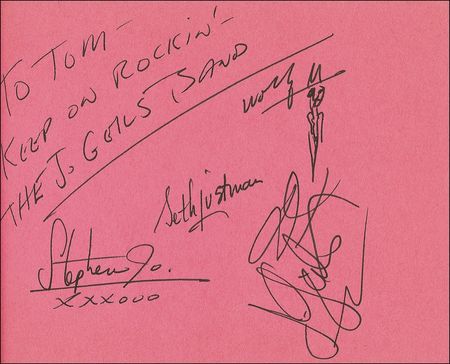 TO TOM-
KEEP ON ROCKIN'-
THE J. GEILS BAND
Wolf
Seth Justman
Stephen Jo.
XXXOOO
J Geils